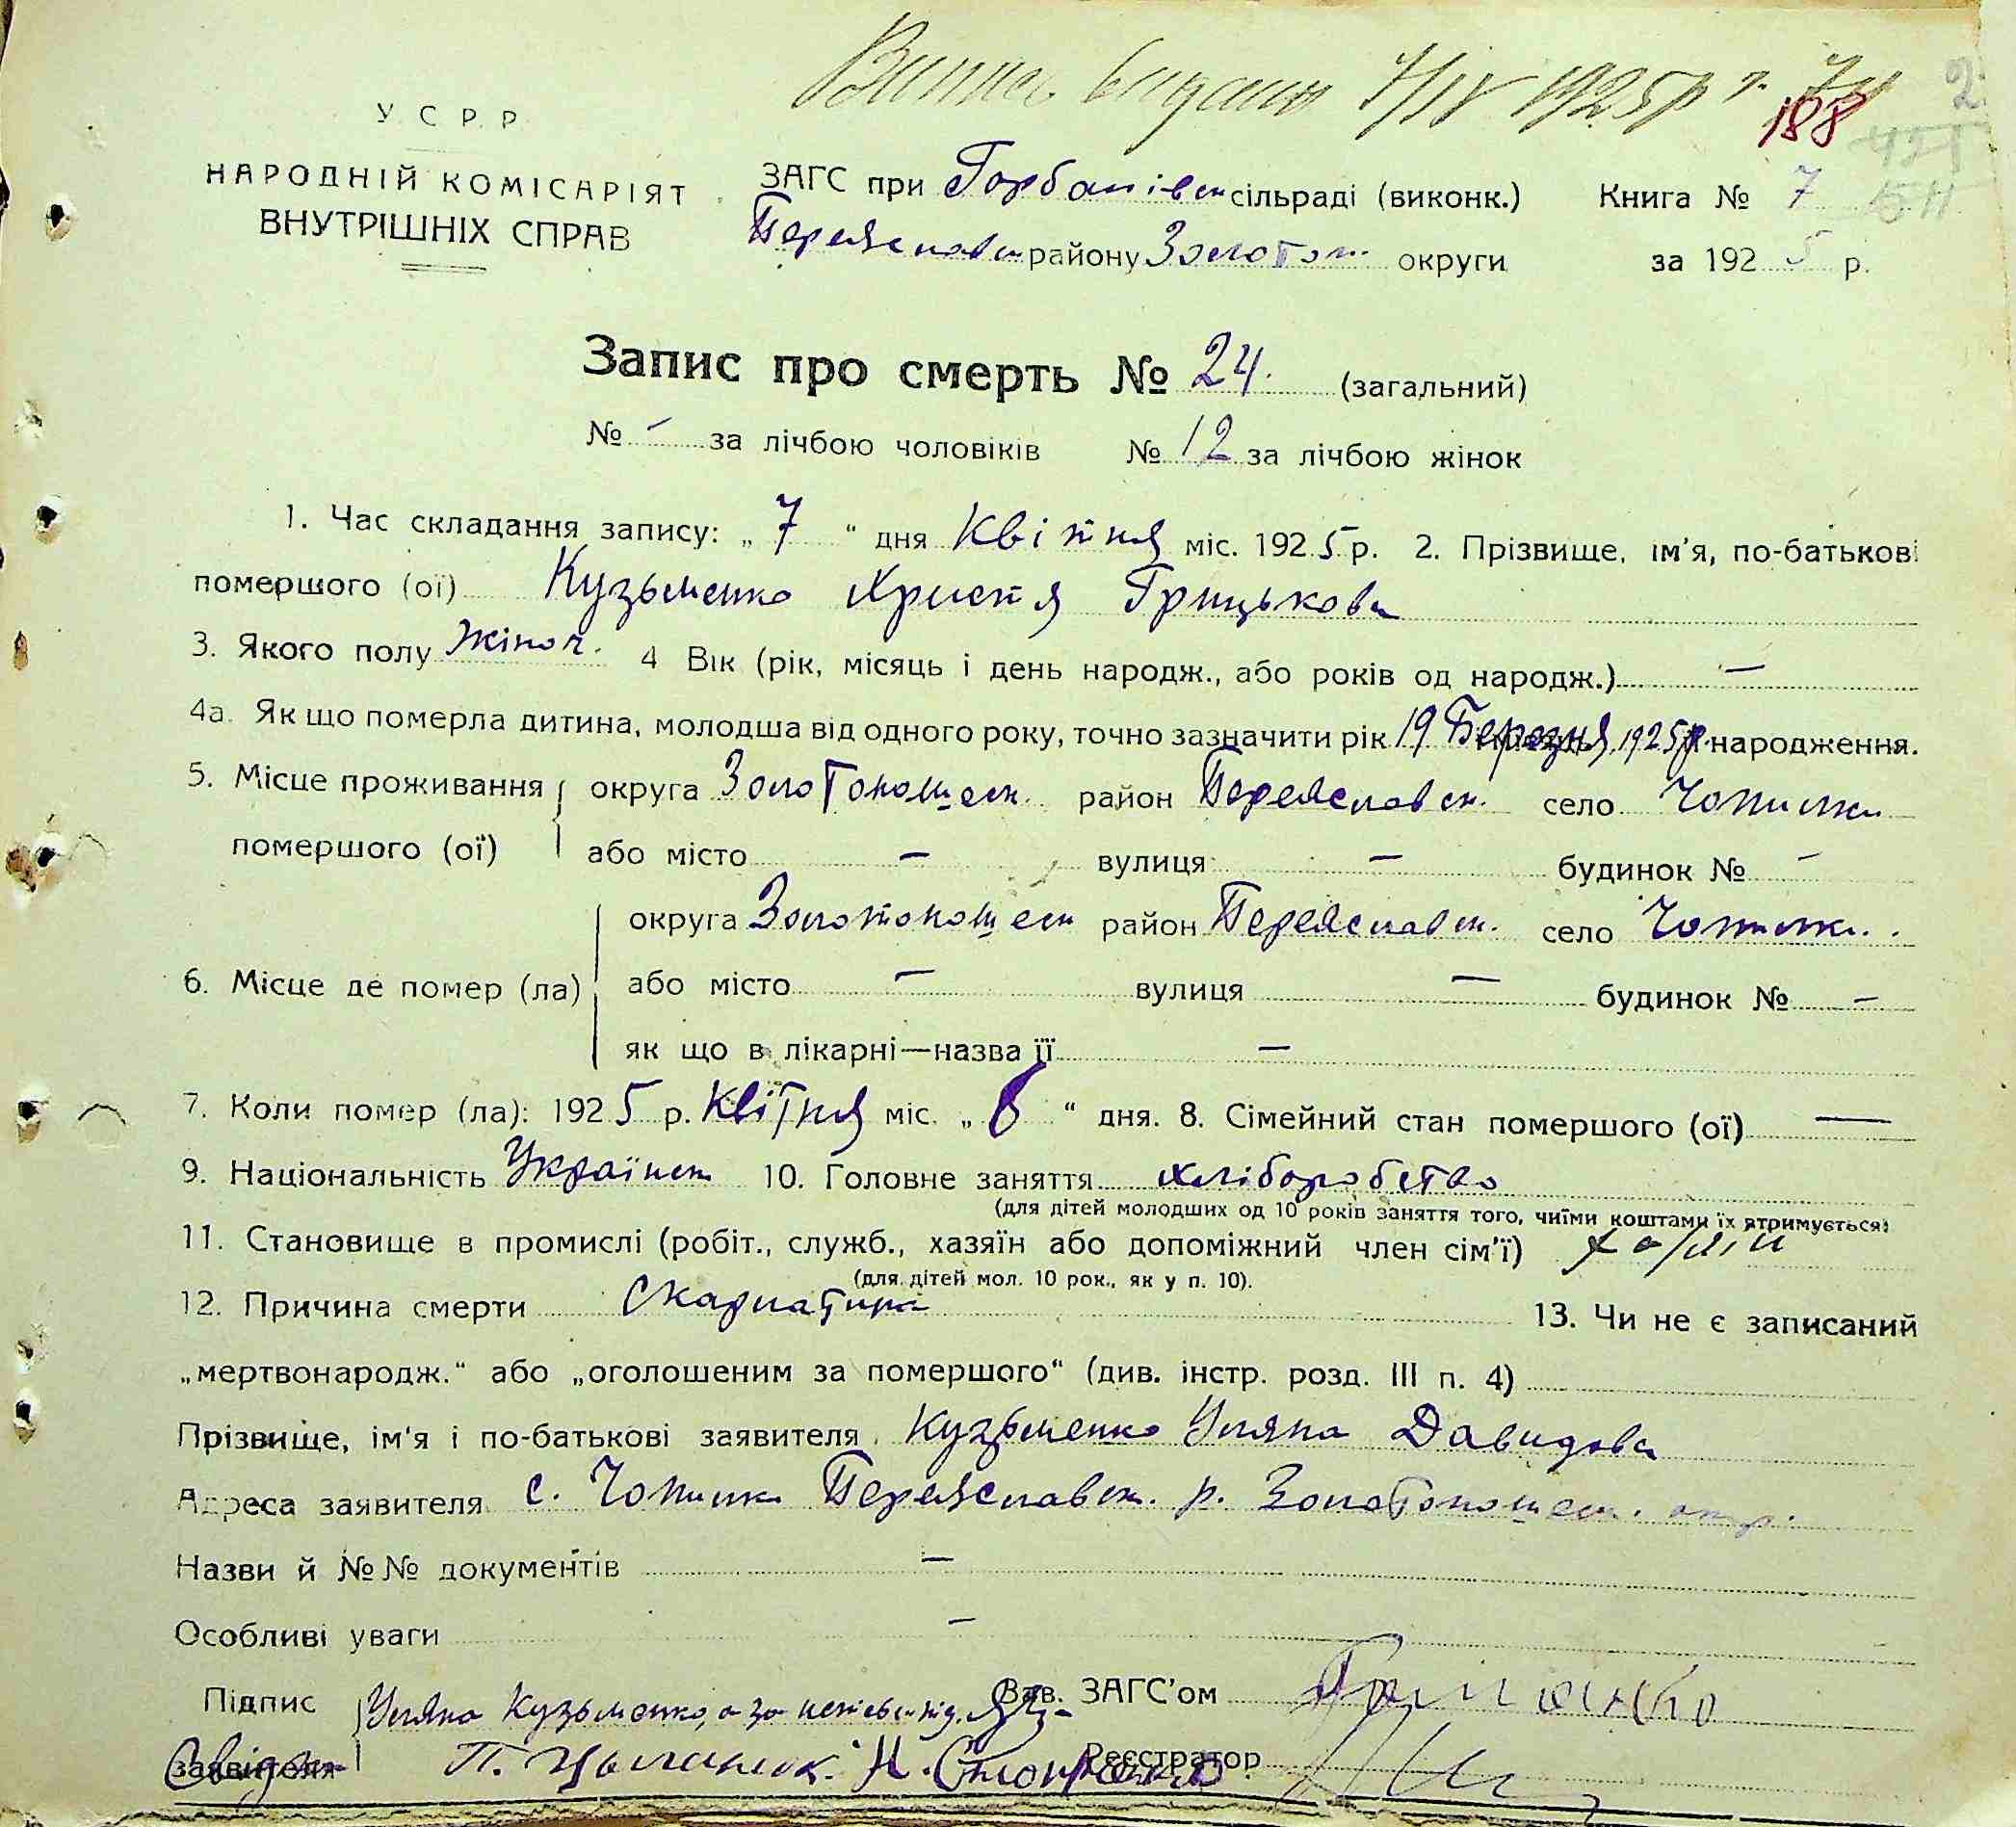 Випис видано 7/IV 1925р
188
У С Р Р
НАРОДНІЙ КОМІСАРІЯТ
ВНУТРІШНІХ СПРАВ
ЗАГС при Горбанівськ сільраді (виконк.) Книга № 7
Переяславськ району Золотон. округи за 192 5 р.
Запис про смерть № 24. (загальний)
№ – за лічбою чоловіків № 12 за лічбою жінок
1. Час складання запису: „ 7 “ дня Квітня міс. 192 5 р. 2. Прізвище, ім'я, по-батькові
помершого (ої) Кузьменко Христя Грицькова
3. Якого полу жіноч. 4 Вік (рік, місяць і день народж., або років од народж.) —
4а. Як що померла дитина, молодша від одного року, точно зазначити рік 19 Березня 1925р. народження.
5. Місце проживання округа Золотоношськ район Переяславськ. село Чопилки
помершого (ої) або місто – вулиця – будинок № –
округа Золотоношськ район Переяславськ. село Чопилки.
6. Місце де помер (ла) або місто – вулиця — будинок № –
як що в лікарні—назва її –
7. Коли помер (ла): 192 5 р. Квітня міс. „ 6 “ дня. 8. Сімейний стан помершого (ої) —
9. Національність Українськ 10. Головне заняття хліборобство
(для дітей молодших од 10 років заняття того, чиїми коштами їх втримується)
11. Становище в промислі (робіт., служб., хазяїн або допоміжний член сім'ї) хазяїн
(для дітей мол. 10 рок., як у п. 10).
12. Причина смерти Скарлатина 13. Чи не є записаний
„мертвонародж.“ або „оголошеним за помершого“ (див. інстр. розд. III п. 4)
Прізвище, ім'я і по-батькові заявителя Кузьменко Уляна Давидова
Адреса заявителя с. Чопилки Переяславськ. р. Золотоношськ. окр.
Назви й №№ документів –
Особливі уваги –
Підпис Уляна Кузьменко, а за неписьм під. Зав. ЗАГС'ом
заявителя П. Реєстратор